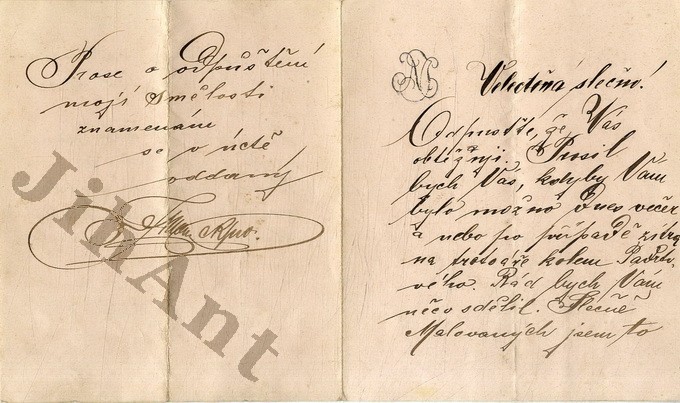 Prose o odpůštění
mojí smělosti
znamenám
se v úctě
oddaný
JihAnt
Veledůstá slečno!
Odpusťte, že Vás
obtěžuji. Prosil
bych Vás, kdyby Vám
bylo možno dnes večer
a nebo po případě zítra
na trotoáře kolem
vého. Rád bych Vám
něco sdělil. Slečně
Malovaných jsem to